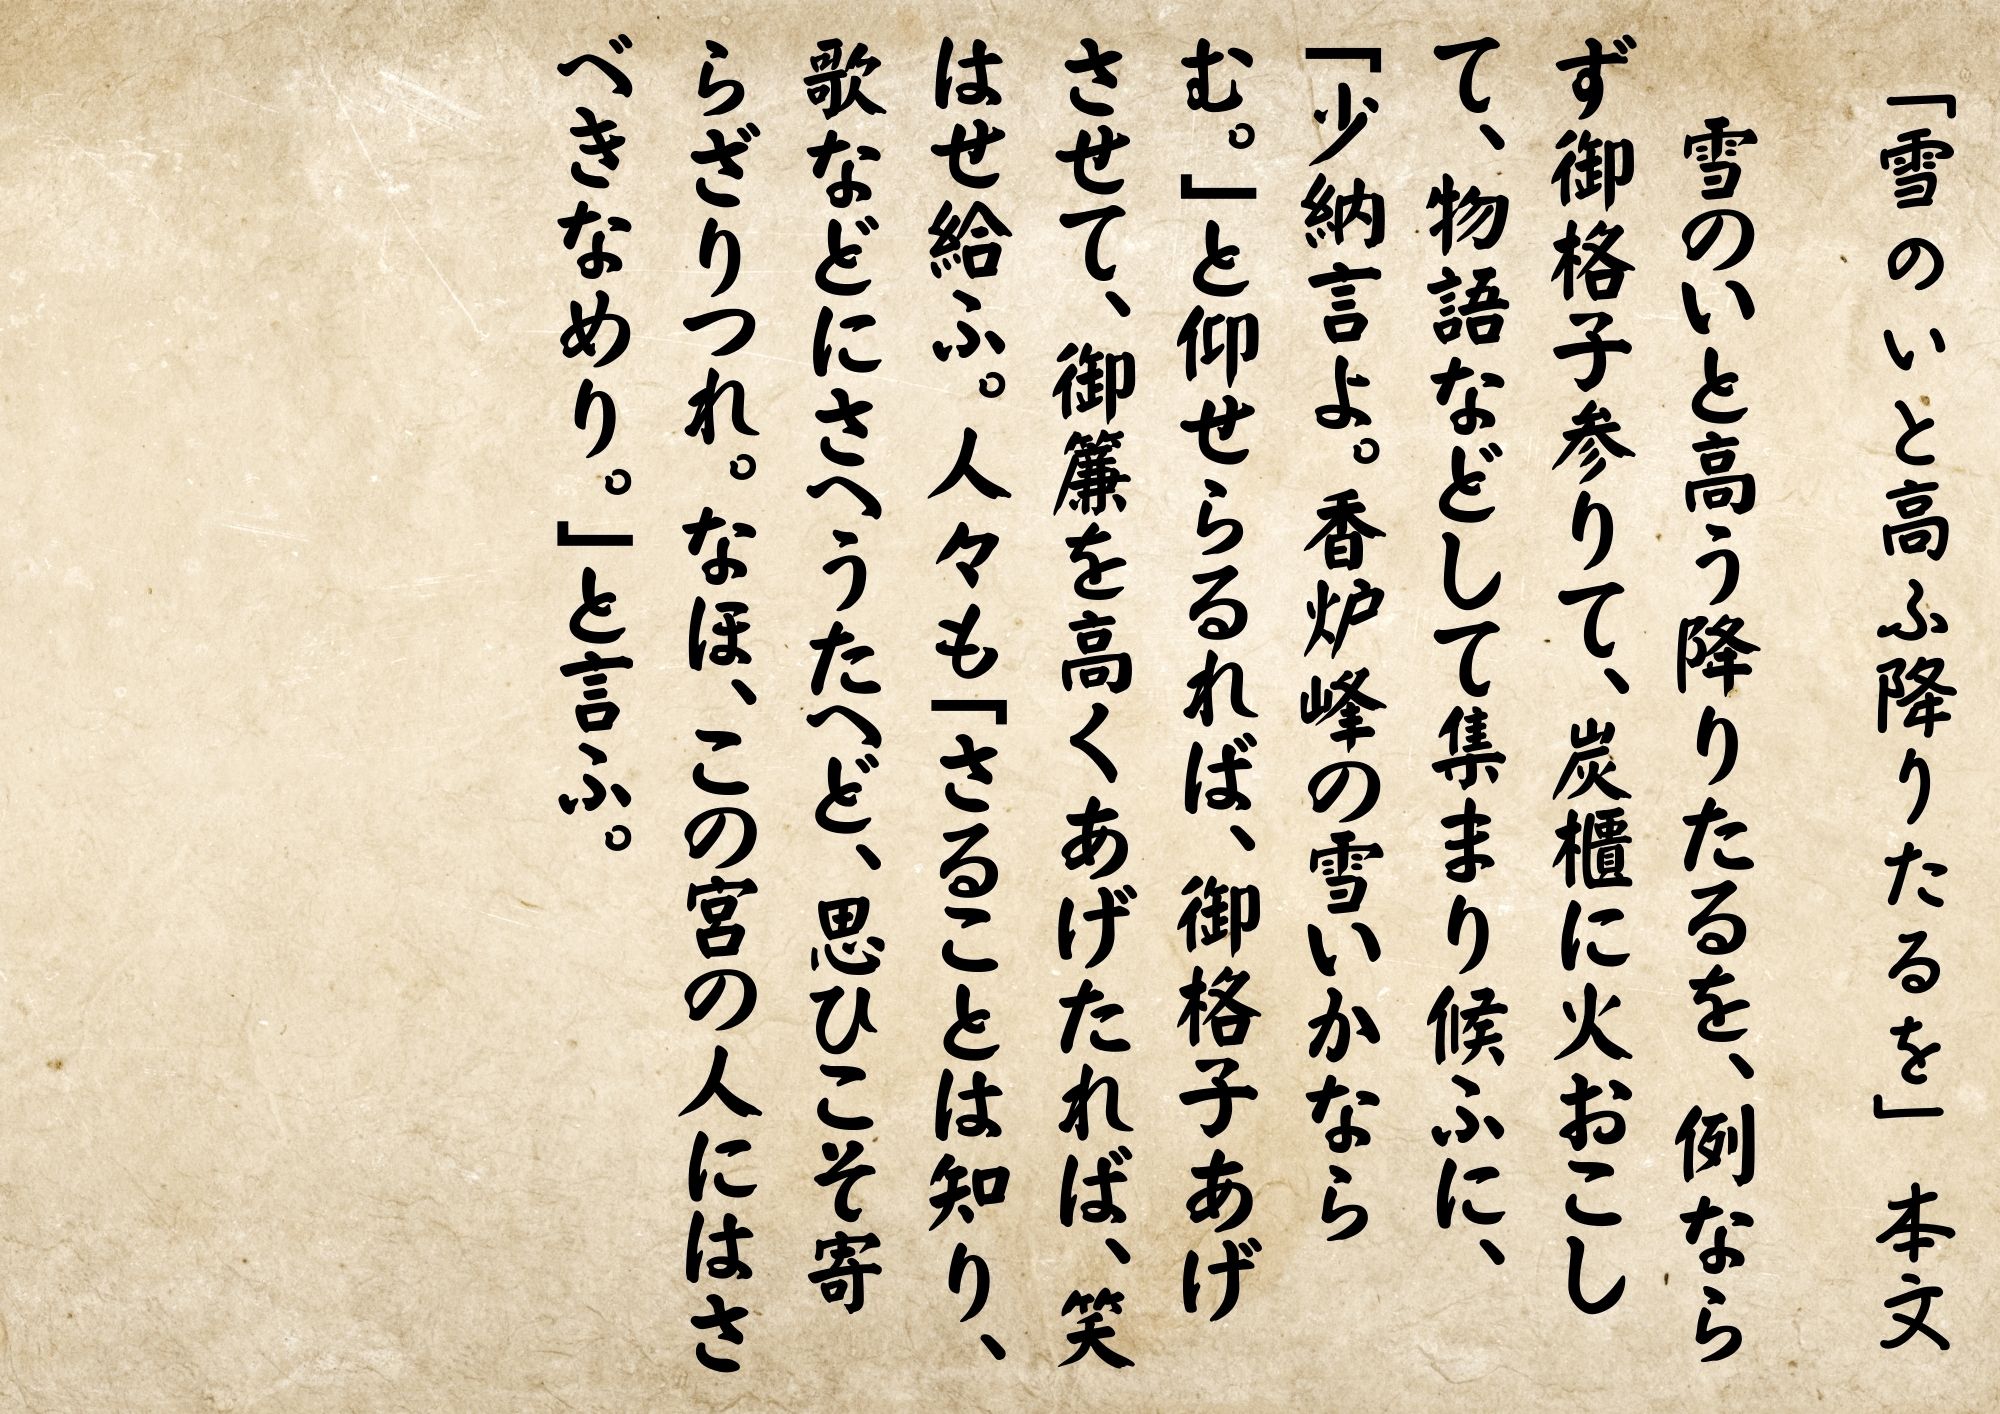 「雪のいと高ふ降りたるを」 本文
雪のいと高う降りたるを、例なら
ず御格子参りて、炭櫃に火おこし
て、物語などして集まり候ふに、
「少納言よ。香炉峰の雪いかなら
む。」と仰せらるれば、御格子あげ
させて、御簾を高くあげたれば、笑
はせ給ふ。人々も「さることは知り、
歌などにさへうたへど、思ひこそ寄
らざりつれ。なほ、この宮の人にはさ
べきなめり。」と言ふ。